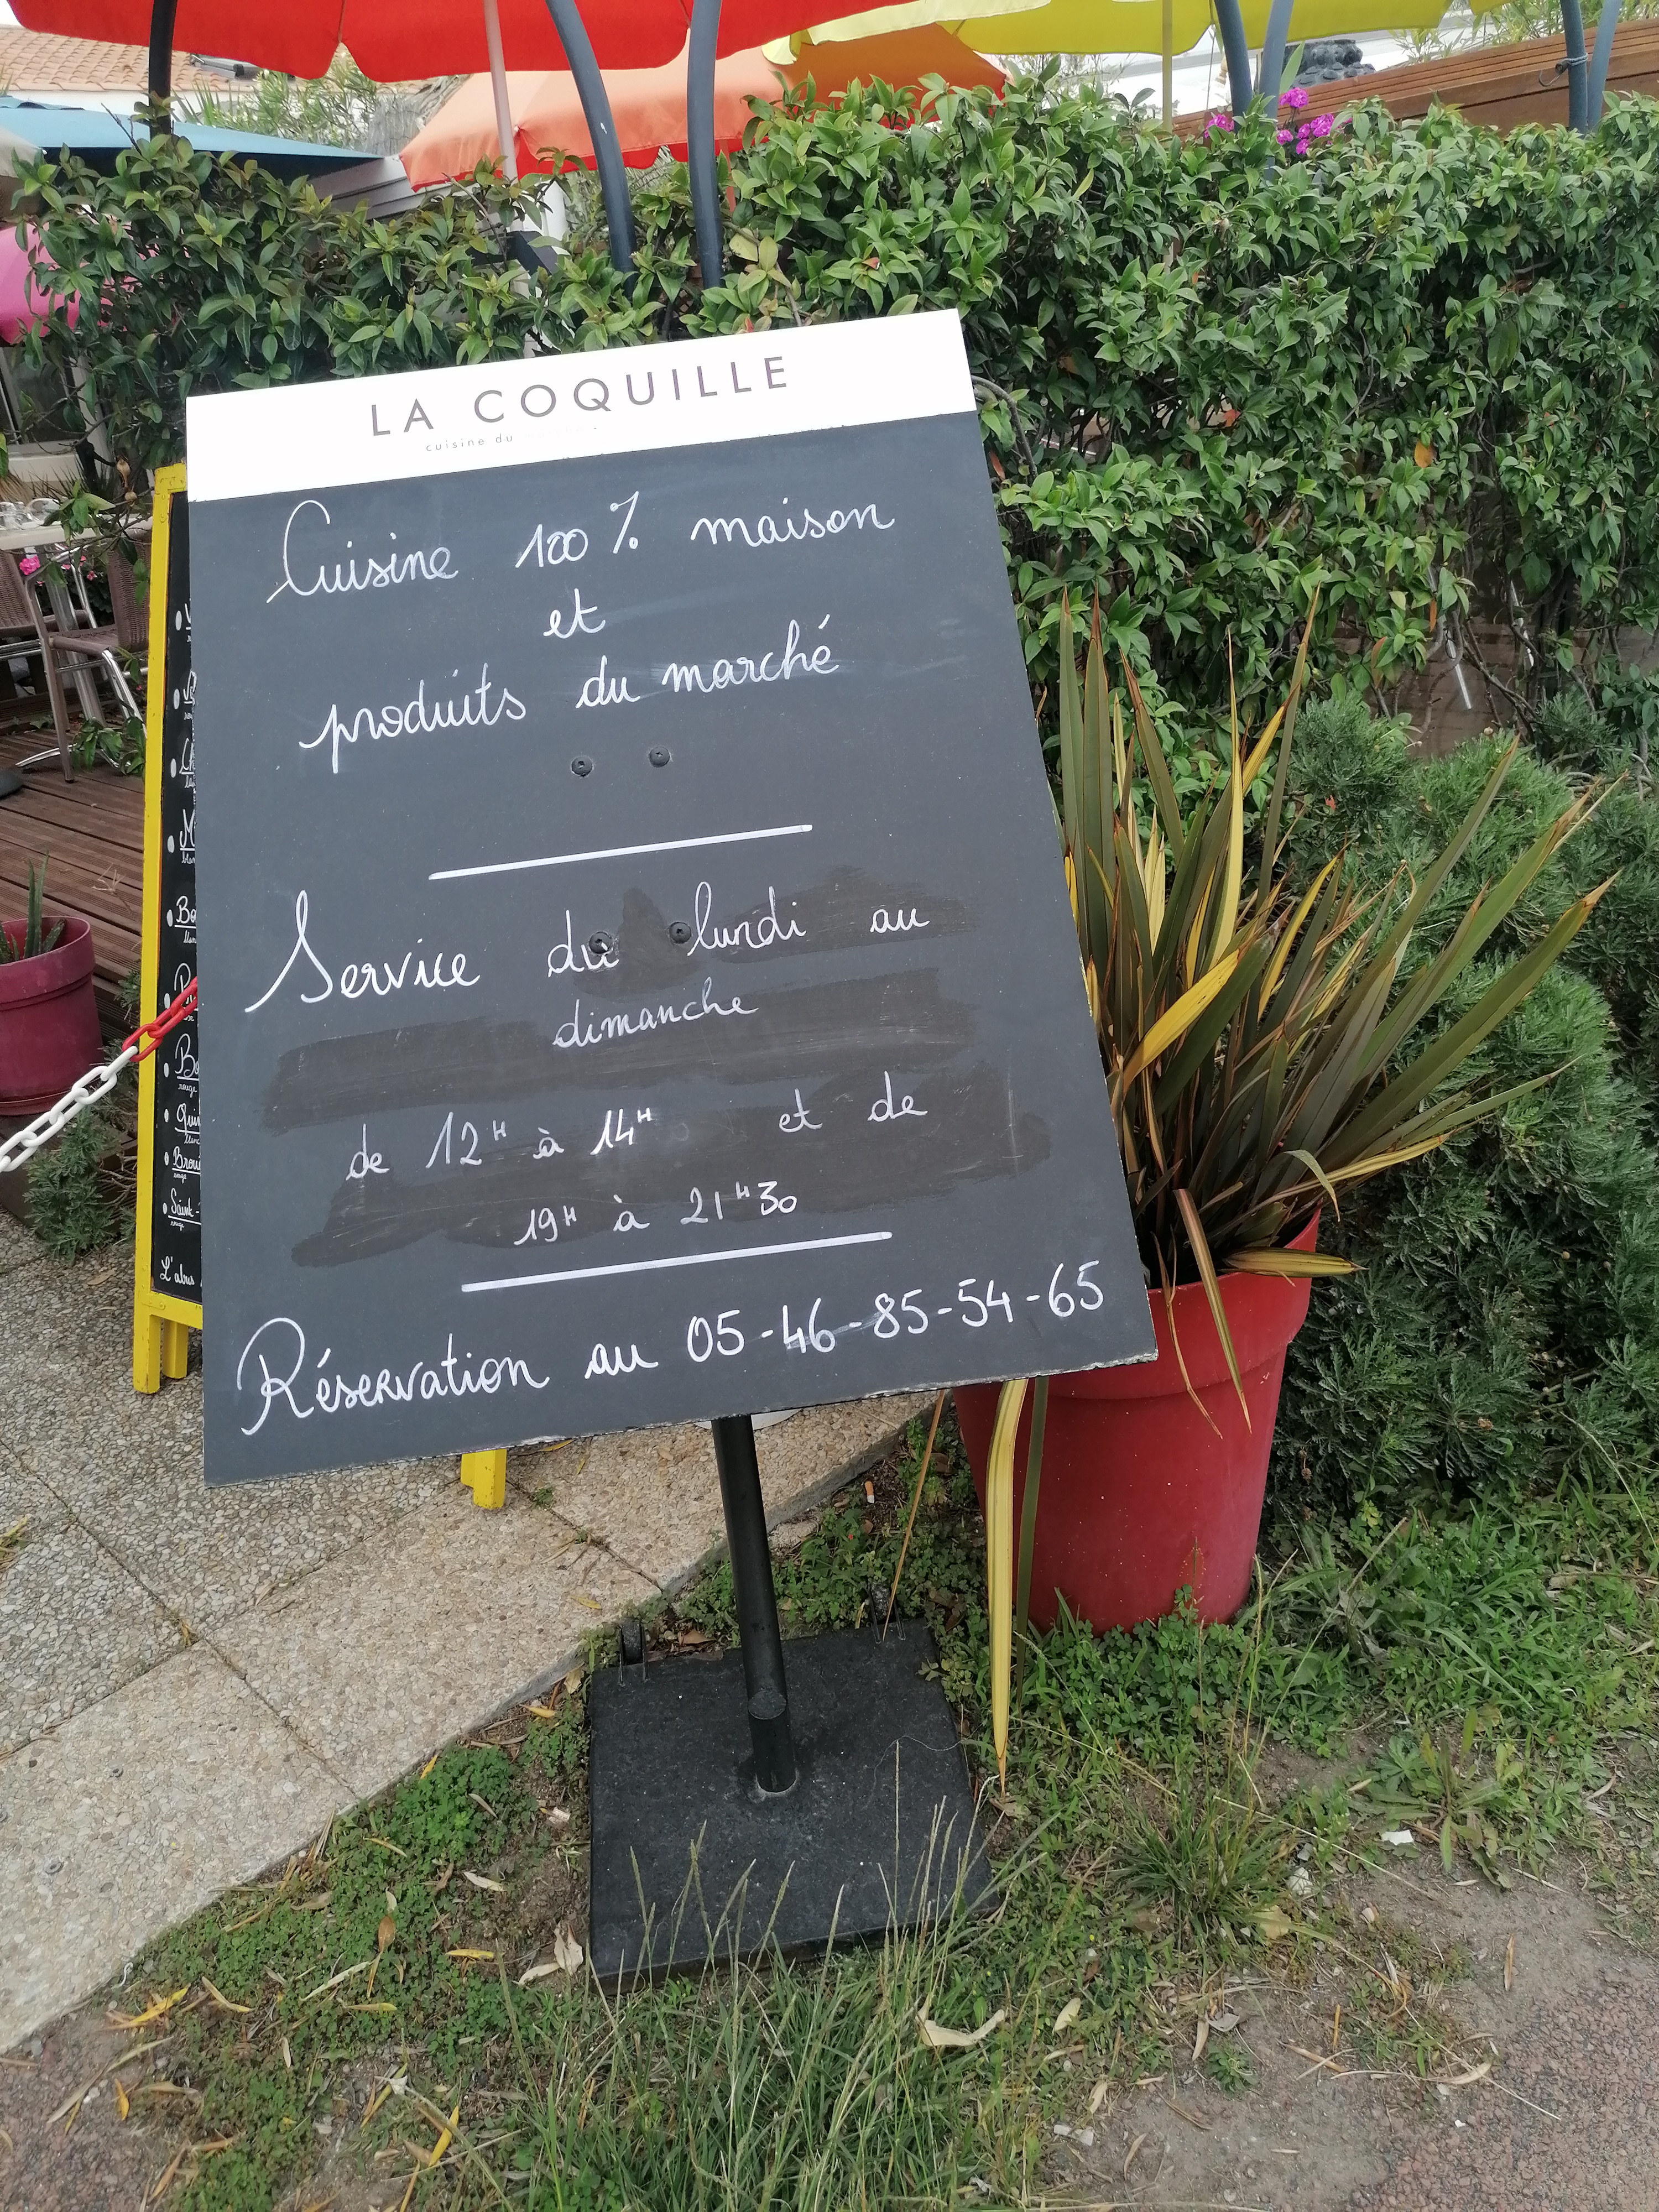 LA COQUILLE
cuisine du
Cuisine 100% maison
et
produits du marché
Service du lundi au
dimanche
de 12H à 14H et de
19H à 21H30
Réservation au 05-46-85-54-65
L'abus